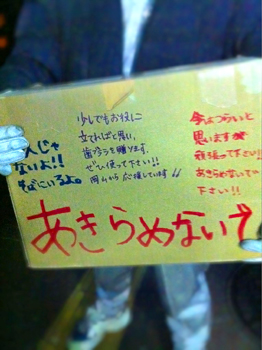 少しでもお役に
立てればと思い、
歯ブラシを贈ります。
ぜひ使って下さい!!
岡山から応援しています!!
今はつらいと
思いますが
頑張って下さい!!
あきらめないで
下さい!!
人じゃ
ないよ!!
そばにいるよ。
あきらめないで